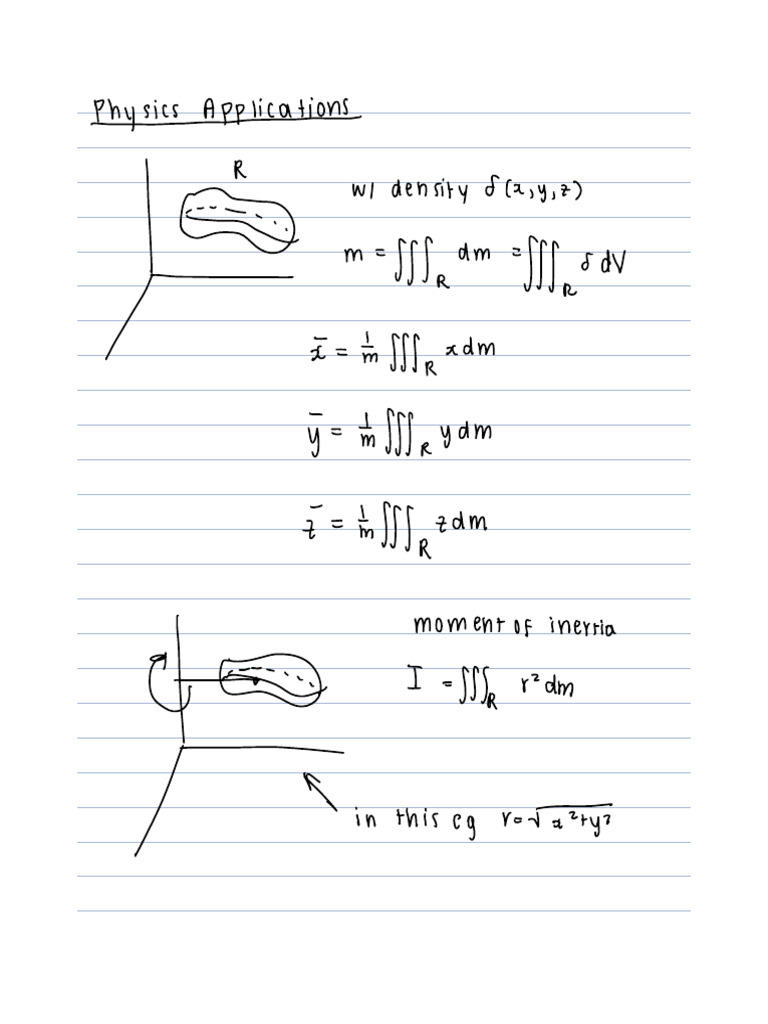 Physics Applications
R
w/ density δ(x,y,z)
m = ∭_R dm = ∭_R δ dV
x̄ = 1/m ∭_R x dm
ȳ = 1/m ∭_R y dm
z̄ = 1/m ∭_R z dm
moment of inertia
I = ∭_R r² dm
in this eg r=√x²+y²